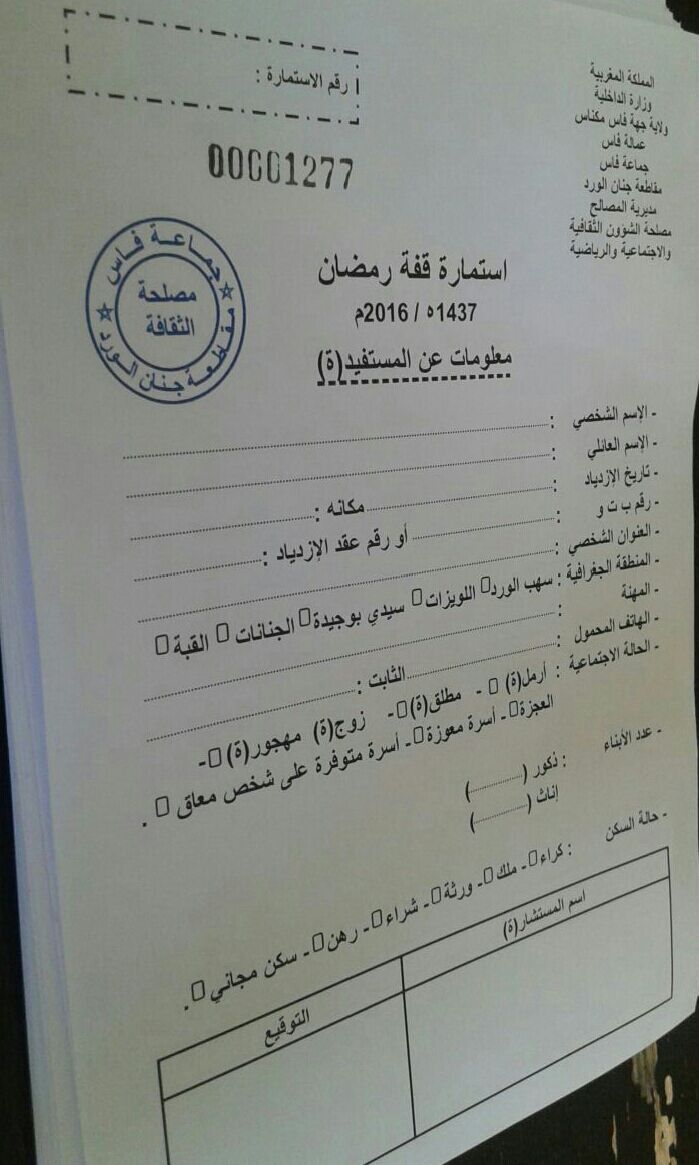 المملكة المغربية
وزارة الداخلية
ولاية جهة فاس مكناس
عمالة فاس
جماعة فاس
مقاطعة جنان الورد
مديرية المصالح
مصلحة الشؤون الثقافية
والاجتماعية والرياضية
رقم الاستمارة :
00001277
جماعة فاس
مقاطعة جنان الورد
مصلحة
الثقافة
استمارة قفة رمضان
1437ه / 2016م
معلومات عن المستفيد(ة)
- الإسم الشخصي :
- الإسم العائلي :
- تاريخ الإزدياد : مكانه :
- رقم ب ت و : أو رقم عقد الإزدياد :
- العنوان الشخصي :
- المنطقة الجغرافية : سهب الورد□ اللويزات□ سيدي بوجيدة□ الجنانات □ القبة □
- المهنة :
- الهاتف المحمول : الثابت :
- الحالة الاجتماعية : أرمل(ة) □ - مطلق(ة)□- زوج(ة) مهجور(ة)□-
العجزة□- أسرة معوزة□- أسرة متوفرة على شخص معاق □ .
- عدد الأبناء : ذكور (..........)
إناث (..........)
- حالة السكن : كراء□- ملك□- ورثة□- شراء□- رهن□- سكن مجاني □ .
اسم المستشار(ة)
التوقيع